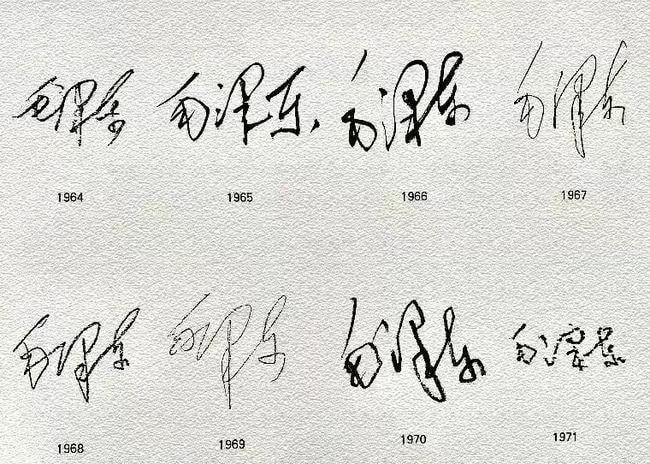 毛泽东 毛泽东 毛泽东 毛泽东
1964 1965 1966 1967
毛泽东 毛泽东 毛泽东 毛泽东
1968 1969 1970 1971